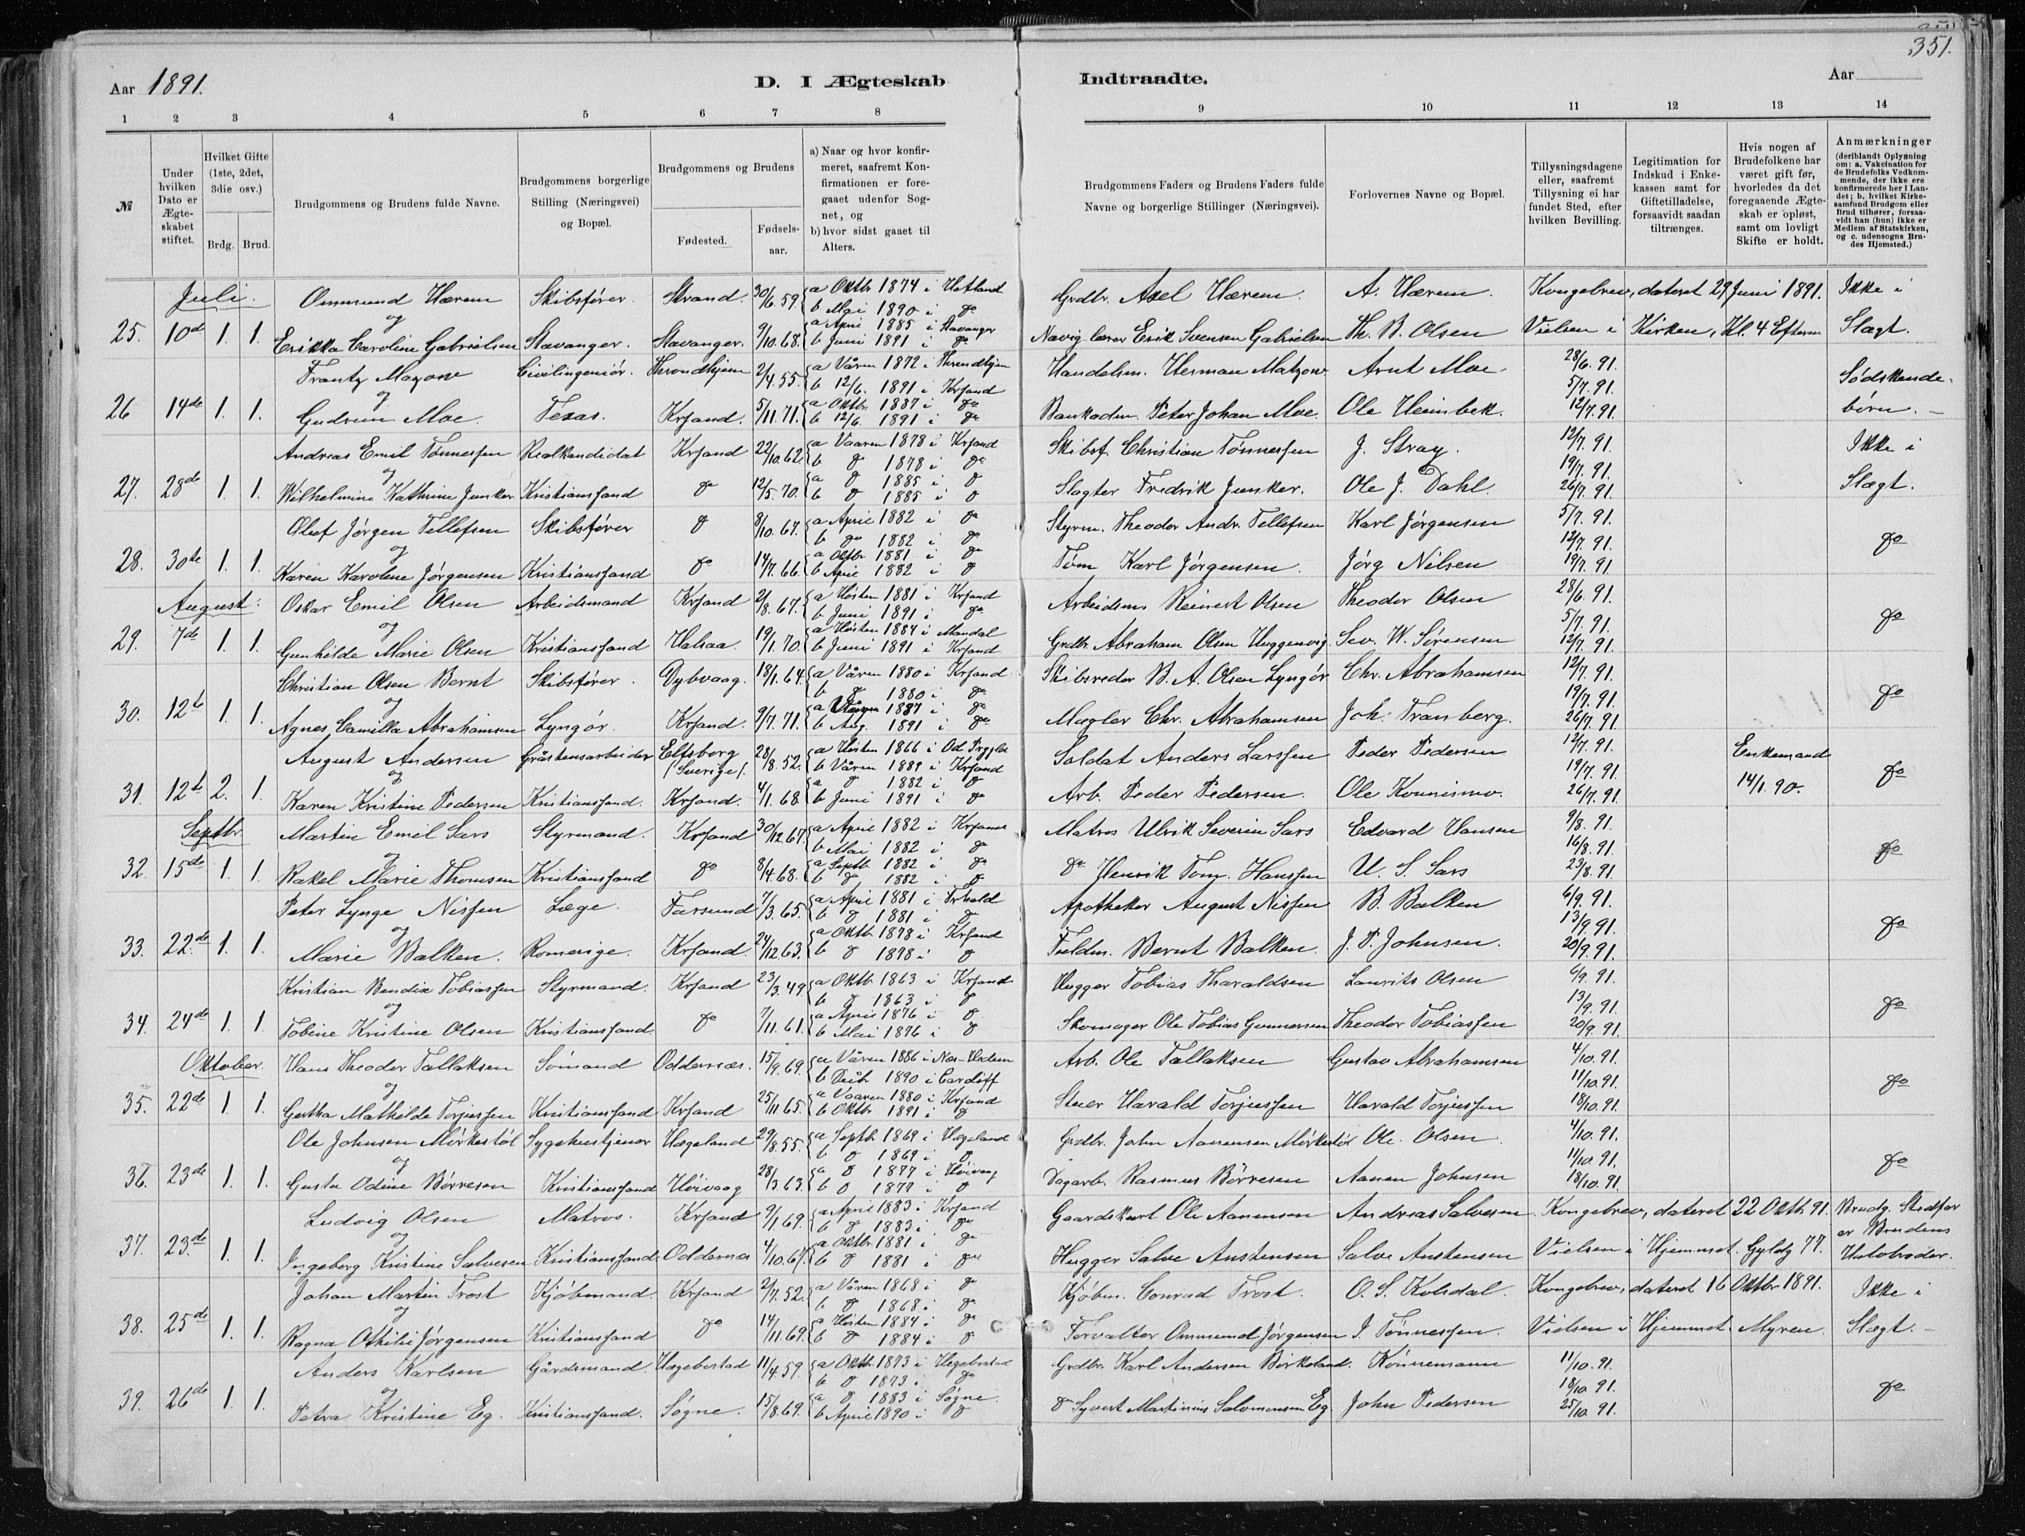 351.
Aar 1891.
D. I Ægteskab Indtraadte.
Aar
1 2 3 4 5 6 7 8 9 10 11 12 13 14
№
Under hvilken Dato er Ægteskabet stiftet.
Hvilket Gifte (1ste, 2det, 3die osv.)
Brdg. Brud.
Brudgommens og Brudens fulde Navne.
Brudgommens borgerlige Stilling (Næringsvei) og Bopæl.
Brudgommens og Brudens
Fødested.
Fødselsaar.
a) Naar og hvor konfirmeret, saafremt Konfirmationen er foregaaet udenfor Sognet, og
b) hvor sidst gaaet til Alters.
Brudgommens Faders og Brudens Faders fulde Navne og borgerlige Stillinger (Næringsvei).
Forlovernes Navne og Bopæl.
Tillysningsdagene eller, saafremt Tillysning ei har fundet Sted, efter hvilken Bevilling.
Legitimation for Indskud i Enkekassen samt for Giftetilladelse, forsaavidt saadan tiltrænges.
Hvis nogen af Brudefolkene har været gift før, hvorledes da det foregaaende Ægteskab er opløst, samt om lovligt Skifte er holdt.
Anmærkninger
(deriblandt Oplysning om: a. Vakcination for de Brudefolks Vedkommende, der ikke ere konfirmerede her i Landet; b. hvilket Kirkesamfund Brudgom eller Brud tilhører, forsaavidt han (hun) ikke er Medlem af Statskirken, og c. udensogns Brudes Hjemsted.)
Juli. Ommund Hærem Skibsfører. Strand. 30/6 59 a Oktb 1874 i Hetland Grdbr. Axel Hærem. A. Hærem. Kongebrev, dateret 29 Juni 1891. Ikke i
og b Mai 1890 i do
25. 10d 1. 1. Erikka Caroline Gabrielsen Stavanger. Stavanger. 9/10.68. a April 1885 i Stavanger Navig. lærer Erik Svensen Gabrielsen Th. B. Olsen Vielsen i Kirken, Kl. 4 Efterm Slægt.
b Juni 1891 i do
Frantz Mazow Civilingeniør. Throndhjem 2/4.55. a Våren 1872 i Throndhjem Handelsm. Herman Matzow Arnt Moe 28/6.91.
og b 12/6. 1891 i Krsand 5/7.91. Sødskende-
26 14de 1. 1. Gudrun Moe. Texas. Krsand. 5/11.71. a Oktbr 1887 i do Bankadm. Peter Johan Moe. Ole Heimbek. 12/7.91. børn.
b 12/6. 1891 i do
Andreas Emil Tønnessen Realkandidat Krsand 22/10.62. a Vaaren 1878 i Krsand Skibsf. Christian Tønnessen J. Stray. 12/7.91. Ikke i
og b do 1878 i do 19/7.91.
27. 28de 1. 1. Wilhelmine Kathrine Junker Kristianssand do 12/5.70. a do 1885 i do Slagter Fredrik Junker. Ole J. Dahl. 26/7.91. Slægt.
b do 1885 i do
Oluf Jørgen Tellefsen Skibsfører do 8/10.67. a April 1882 i do Styrm. Theodor Andr. Tellefsen Karl Jørgensen 5/7.91.
og b do 1882 i do 12/7.91. do
28. 30te 1. 1. Karen Karoline Jørgensen Kristianssand do 14/7.66. a Oktbr 1881 i do Tøm Karl Jørgensen. Jørg Nilsen 19/7.91.
b April 1882 i do
August: Oskar Emil Olsen Arbeidsmand Krsand 2/8.67. a Høsten 1881 i Krsand Arbeidsm Reinert Olsen Theodor Olsen 28/6.91.
og b Juni 1891 i do 5/7.91. do
29. 7de 1. 1. Gunhilde Marie Olsen Kristianssand Halsaa 19/1.70. a Høsten 1884 i Mandal Grdbr. Abraham Olsen Huggenvig Sev. W. Sørensen 12/7.91.
b Juni 1891 i Krsand
Christian Olsen Bernt Skibsfører. Dybvaag. 18/1.64. a Våren 1880 i Krsand Skibsreder B. A. Olsen Lyngør Chr. Abrahamsen 12/7.91.
og b do 1880 i do 19/7.91. do
30. 12te 1. 1. Agnes Camilla Abrahamsen Lyngør. Krsand. 9/7.71. a Våren 1887 i do Mægler Chr. Abrahamsen Joh. Tranberg. 26/7.91.
b Aug. 1891 i do
August Andersen Gråstensarbeider Elfsborg (Sverige). 28/8.52. a Høsten 1866 i Soldat Anders Larssen Peder Pedersen 12/7.91. Enkemand
og b Våren 1889 i Krsand 19/7.91. do
31. 12te 2. 1. Karen Kristine Pedersen Kristianssand. Krsand. 4/1.68 a do 1882 i do Arb. Peder Pedersen. Ole Konnismo. 26/7.91. 14/1.90.
b Juni 1891 i do
Septbr Martin Emil Sars Styrmand. Krsand 30/12.67. a April 1882 i Krsand Matros Ulrik Severin Sars Edvard Hansen 9/8.91.
og b Mai 1882 i do 16/8.91. do
32. 15de 1. 1. Rakel Marie Thomsen Kristianssand do 8/4.68. a Septb 1882 i do do Henrik Tom. Hanssen U. S. Sars 23/8.91.
b do 1882 i do
Peter Lynge Nissen Læge. Farsund 7/3.65. a April 1881 i Frhald Apotheker August Nissen B. Balken 6/9.91.
og b do 1881 i do 13/9.91. do
33. 22de 1. 1. Marie Balken. Romerige. Krsand. 24/12 63. a Oktb 1878 i Krsand Feldm. Bernt Balken. J. P. Johnsen. 20/9.91.
b do 1898 i do
Kristian Bendix Tobiassen Styrmand. Krsand 23/3.49 a Oktb 1863 i Krsand Hugger Tobias Tharaldsen Laurits Olsen 6/9.91.
og b do 1863 i do 13/9.91. do
34. 24de 1. 1. Tobine Kristine Olsen Kristianssand do 7/11.61. a April 1876 i do Skomager Ole Tobias Gunnersen Theodor Tobiassen 20/9.91.
b Mai 1876 i do
Oktober. Hans Theodor Tallaksen Sømand. Oddernæs. 15/9.69. a Våren 1886 i Nes-Hedem Arb. Ole Tallaksen Gustav Abrahamsen 4/10.91.
og b 1890 i Cardiff 11/10.91. do
35. 22de 1. 1. Gertha Mathilde Torjussen Kristianssand Krsand 25/11 65. a Vaaren 1880 i Krsand Stuer Harald Torjussen Harald Torjussen 18/10.91.
b Oktbr 1891 i do
Ole Johnsen Mørkestøl Sygehustjener Hægeland 29/8.55. a Septb 1869 i Hægeland Grdbr. John Aanensen Mørkestøl Ole. Olsen 4/10.91.
og b do 1869 i do 11/10.91. do
36. 23de 1. 1. Gusta Odine Børresen Kristianssand Høivaag 28/3 63. a do 1877 i Høivaag Dagarb. Rasmus Børresen Aanen Johnsen 18/10.91.
b do 1877 i do
Ludvig Olsen Matros. Krsand 9/1.69. a April 1883 i Krsand Gaardskarl Ole Aanensen Andreas Salvesen Kongebrev, dateret 22 Oktb 91. Brudg. Stedfar
og b do 1883 i do er Brudens
37. 23de 1. 1. Ingeborg Kristine Salvesen Kristianssand Oddernes 4/10.67. a Oktb 1881 i do Hugger Salve Austensen Salve Austensen Vielsen i Hjemmet. Gyldg 77. Halvbroder.
b do 1881 i do
Johan Martin Trost Kjøbmand. Krsand 2/7.52. a Våren 1868 i do Kjøbm. Conrad Trost. O. S. Kolsdal. Kongebrev, dateret 16 Oktbr 1891. Ikke i
og b do 1868 i do
38. 25de 1. 1. Ragna Othilie Jørgensen Kristianssand do 14/11.69. a Høsten 1884 i do Forvalter Ommund Jørgensen J. Tønnessen. Vielsen i Hjemmet. Myren. Slægt.
b do 1884 i do
Anders Karlsen Gårdsmand. Hægebostad 11/4.59. a Oktb 1873 i Hegebostad Grdbr. Karl Andersen Birkeland. Kønnemann 11/10.91.
og b do 1873 i do 18/10.91. do
39. 26de 1. 1. Petra Kristine Eg. Kristianssand. Søgne. 15/8.69. a do 1883 i Søgne. do Syvert Martinius Salomonsen Eg. John Pedersen 25/10.91.
b April 1890 i do